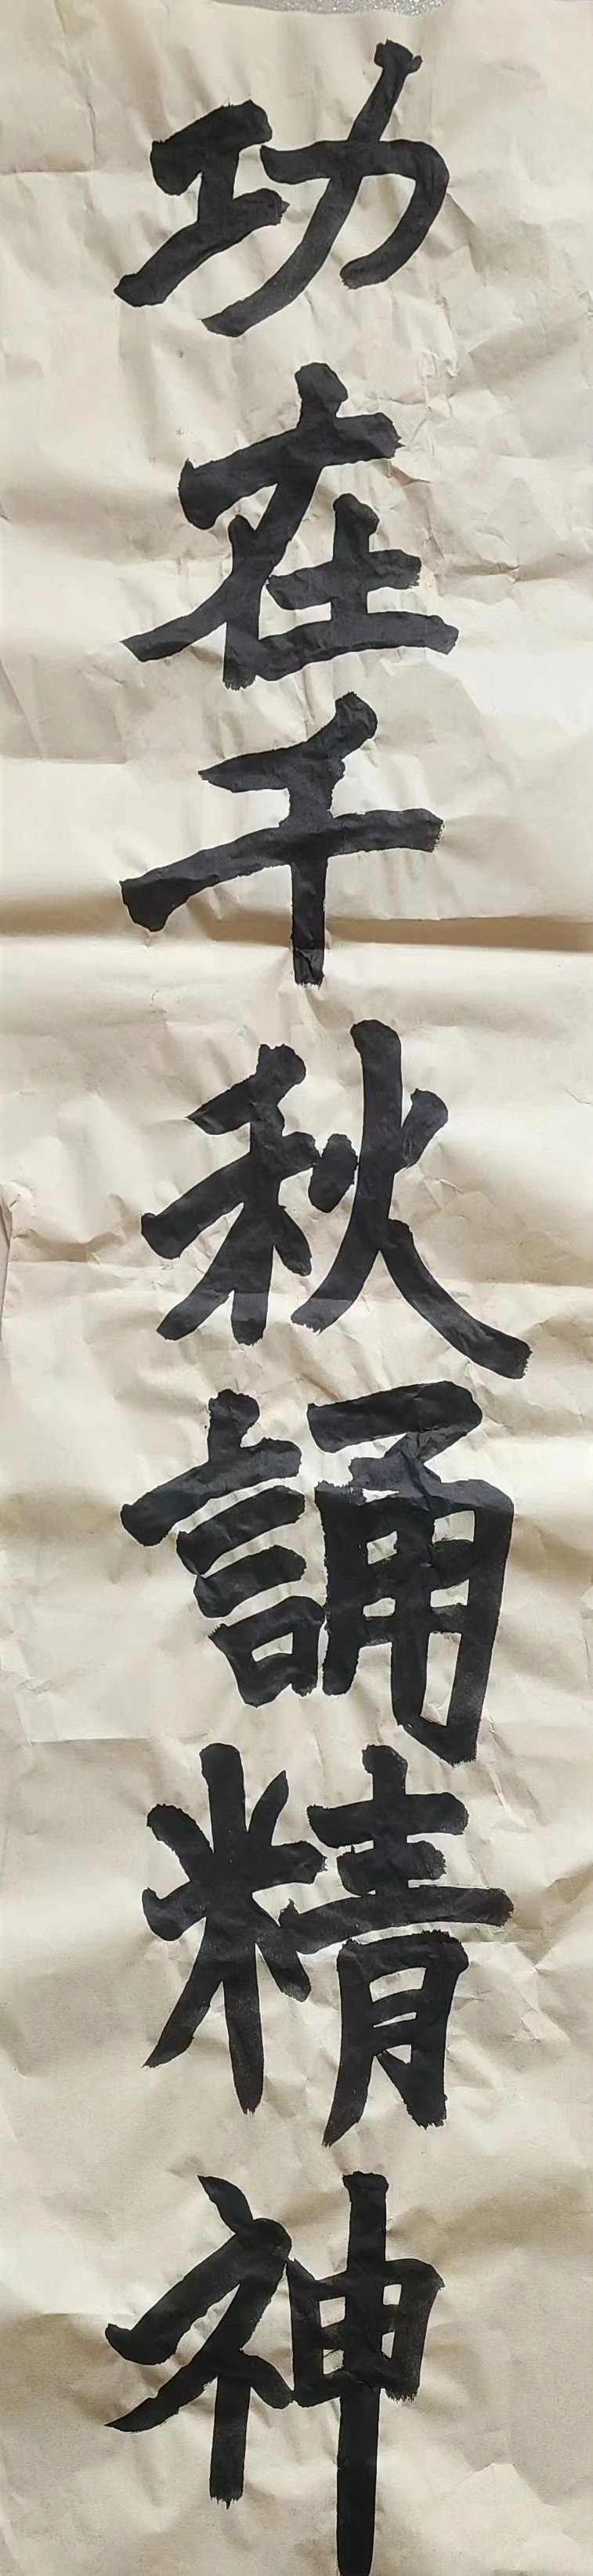 功在千秋誦精神